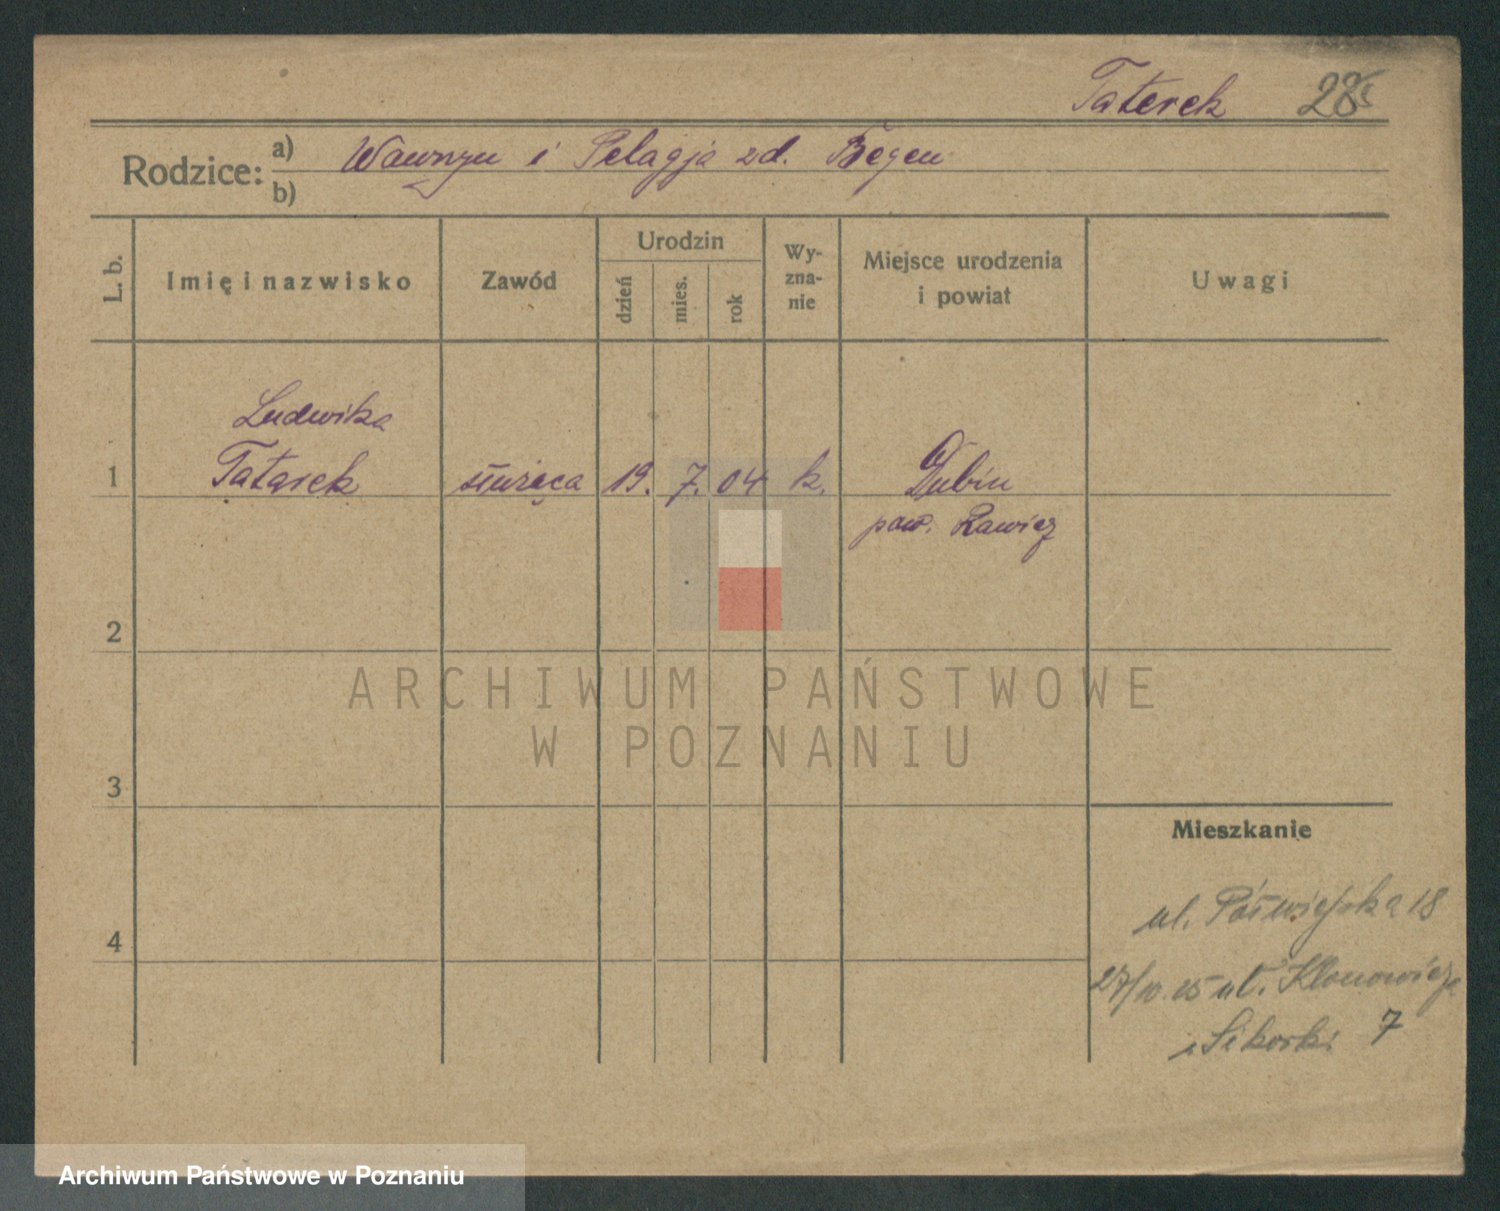 Taterek 28
Rodzice: a) Wawrzyn i Pelagja zd. Begen
b)
L. b. Imię i nazwisko Zawód Urodzin dzień mies. rok Wy-zna-nie Miejsce urodzenia i powiat Uwagi
Ludwika
1 Tatarek służąca 19. 7. 04 k. Dubin
pow. Rawicz
2
ARCHIWUM PAŃSTWOWE
W POZNANIU
3
Mieszkanie
ul. Półwiejska 18
4
27/10 25 ul. Klonowicza
Sikorski 7
Archiwum Państwowe w Poznaniu